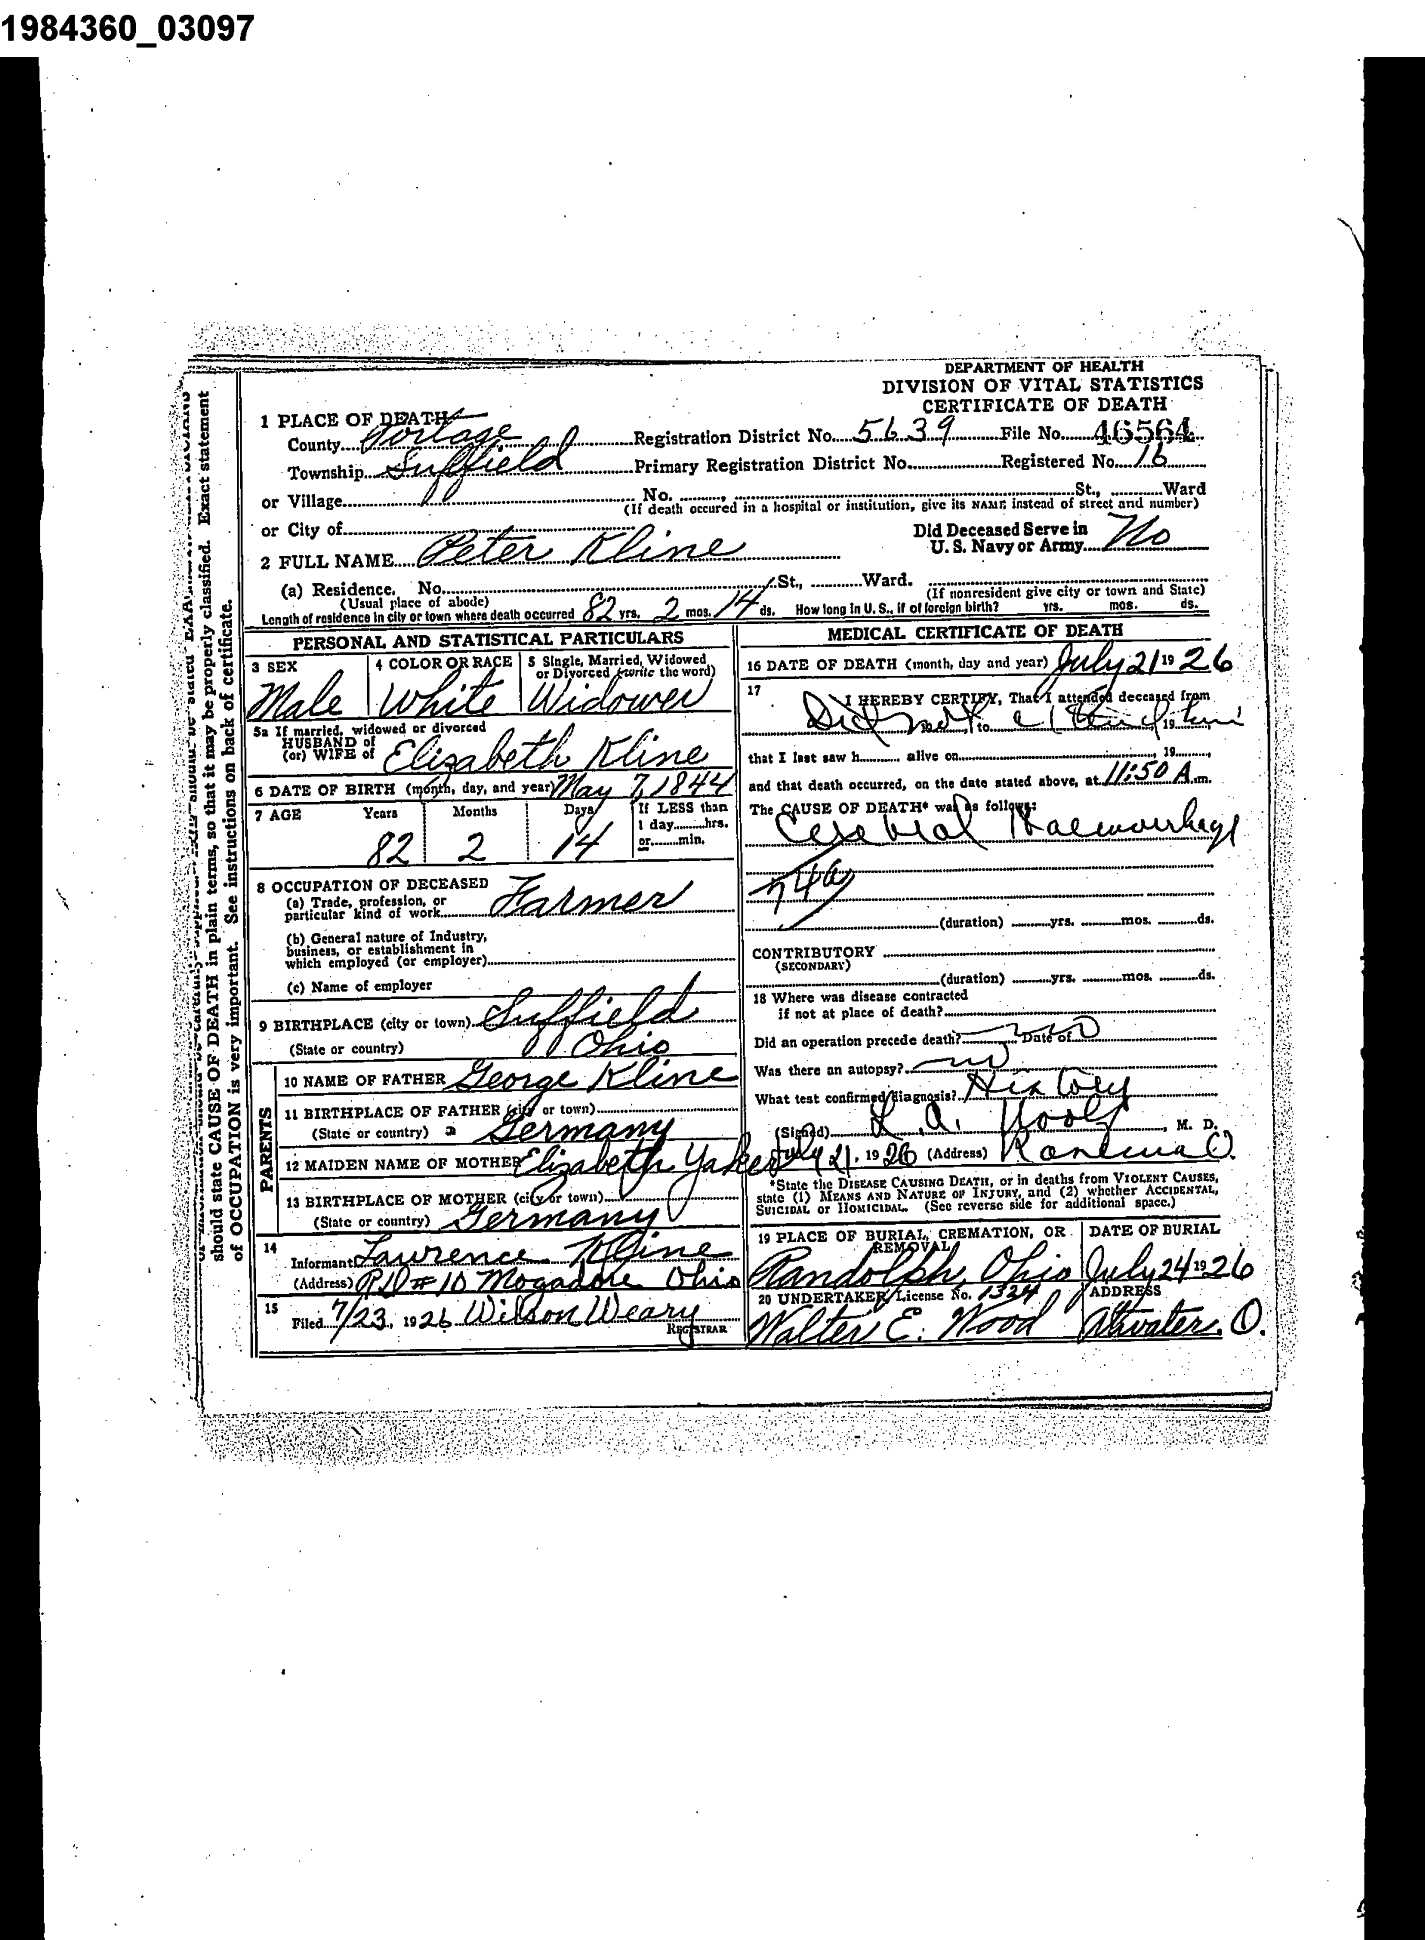 1984360_03097
DEPARTMENT OF HEALTH
DIVISION OF VITAL STATISTICS
CERTIFICATE OF DEATH
1 PLACE OF DEATH
County Portage Registration District No. 5639 File No. 46564
Township Suffield Primary Registration District No. Registered No. 16
or Village No. St., Ward
(If death occured in a hospital or institution, give its NAME instead of street and number)
or City of Did Deceased Serve in
U. S. Navy or Army No
2 FULL NAME Peter Kline
(a) Residence. No. St., Ward.
(Usual place of abode) (If nonresident give city or town and State)
Length of residence in city or town where death occurred 82 yrs. 2 mos. 14 ds. How long in U. S., if of foreign birth? yrs. mos. ds.
PERSONAL AND STATISTICAL PARTICULARS
3 SEX Male
4 COLOR OR RACE White
5 Single, Married, Widowed
or Divorced (write the word)
Widower
5a If married, widowed or divorced
HUSBAND of
(or) WIFE of Elizabeth Kline
6 DATE OF BIRTH (month, day, and year) May 7, 1844
7 AGE Years Months Days If LESS than
1 day hrs.
or min.
82 2 14
8 OCCUPATION OF DECEASED
(a) Trade, profession, or
particular kind of work Farmer
(b) General nature of Industry,
business, or establishment in
which employed (or employer)
(c) Name of employer
9 BIRTHPLACE (city or town) Suffield
(State or country) Ohio
PARENTS
10 NAME OF FATHER George Kline
11 BIRTHPLACE OF FATHER (city or town)
(State or country) Germany
12 MAIDEN NAME OF MOTHER Elizabeth
13 BIRTHPLACE OF MOTHER (city or town)
(State or country) Germany
14
Informant Lawrence Kline
(Address) R D # 10 Mogadore Ohio
15
Filed 7/23, 1926 Wilson Weary
REGISTRAR
MEDICAL CERTIFICATE OF DEATH
16 DATE OF DEATH (month, day and year) July 21 1926
17
I HEREBY CERTIFY, That I attended deceased from
Did not attend him to 19
that I last saw h alive on 19
and that death occurred, on the date stated above, at 11:50 A.m.
The CAUSE OF DEATH* was as follows:
Cerebral Haemorrhage
74a
(duration) yrs. mos. ds.
CONTRIBUTORY
(SECONDARY)
(duration) yrs. mos. ds.
18 Where was disease contracted
if not at place of death?
Did an operation precede death? no Date of
Was there an autopsy? no
What test confirmed diagnosis? History
(Signed) L. A. Woolf, M. D.
July 21, 1926 (Address) Ravenna O.
*State the DISEASE CAUSING DEATH, or in deaths from VIOLENT CAUSES,
state (1) MEANS AND NATURE OF INJURY, and (2) whether ACCIDENTAL,
SUICIDAL or HOMICIDAL. (See reverse side for additional space.)
19 PLACE OF BURIAL, CREMATION, OR
REMOVAL
Randolph, Ohio
DATE OF BURIAL
July 24 1926
20 UNDERTAKER, License No. 1324
Walter E. Wood
ADDRESS
Atwater. O.
should state CAUSE OF DEATH in plain terms, so that it may be properly classified. Exact statement
of OCCUPATION is very important. See instructions on back of certificate.